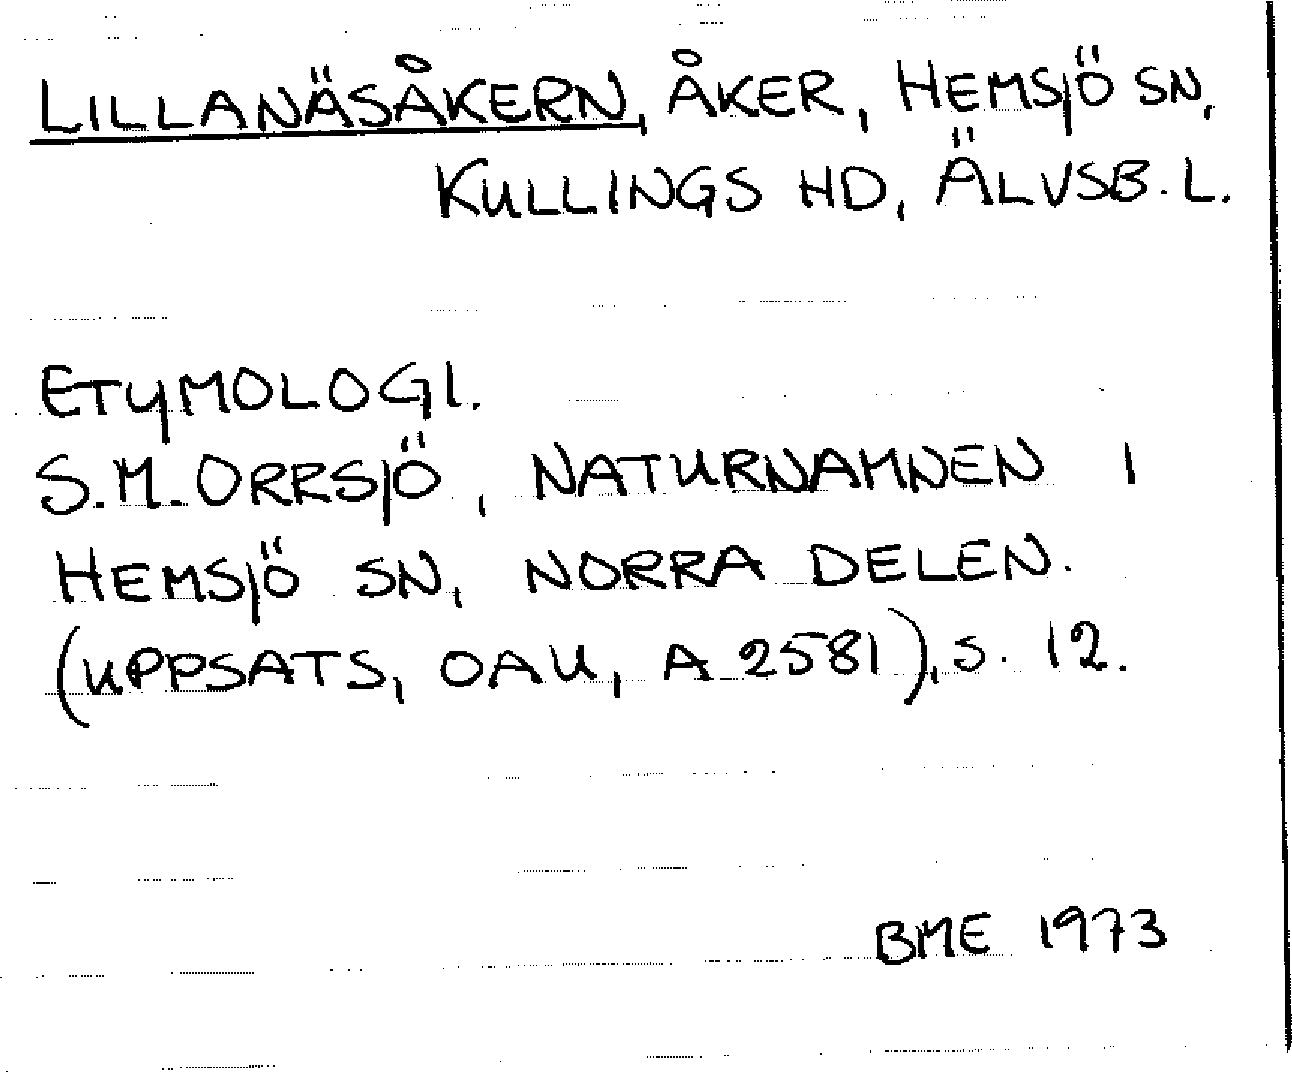 LILLANÄSÅKERN, ÅKER, HEMSJÖ SN,
KULLINGS HD, ÄLVSB. L.
ETYMOLOGI.
S.M. ORRSJÖ, NATURNAMNEN I
HEMSJÖ SN, NORRA DELEN.
(UPPSATS, OAU, A 2581), S. 12.
BME 1973